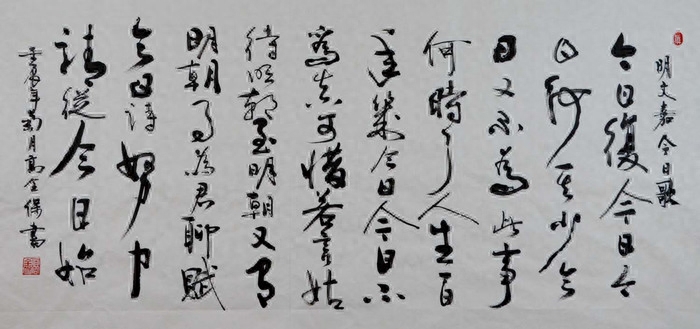 明文嘉今日歌
今日復今日今
日何其少今
日又不為此事
何時了人生百
年幾今日今日不
為真可惜若言姑
待明朝至明朝又有
明朝事為君聊賦
今日詩努力
請從今日始
壬辰年月高全保書